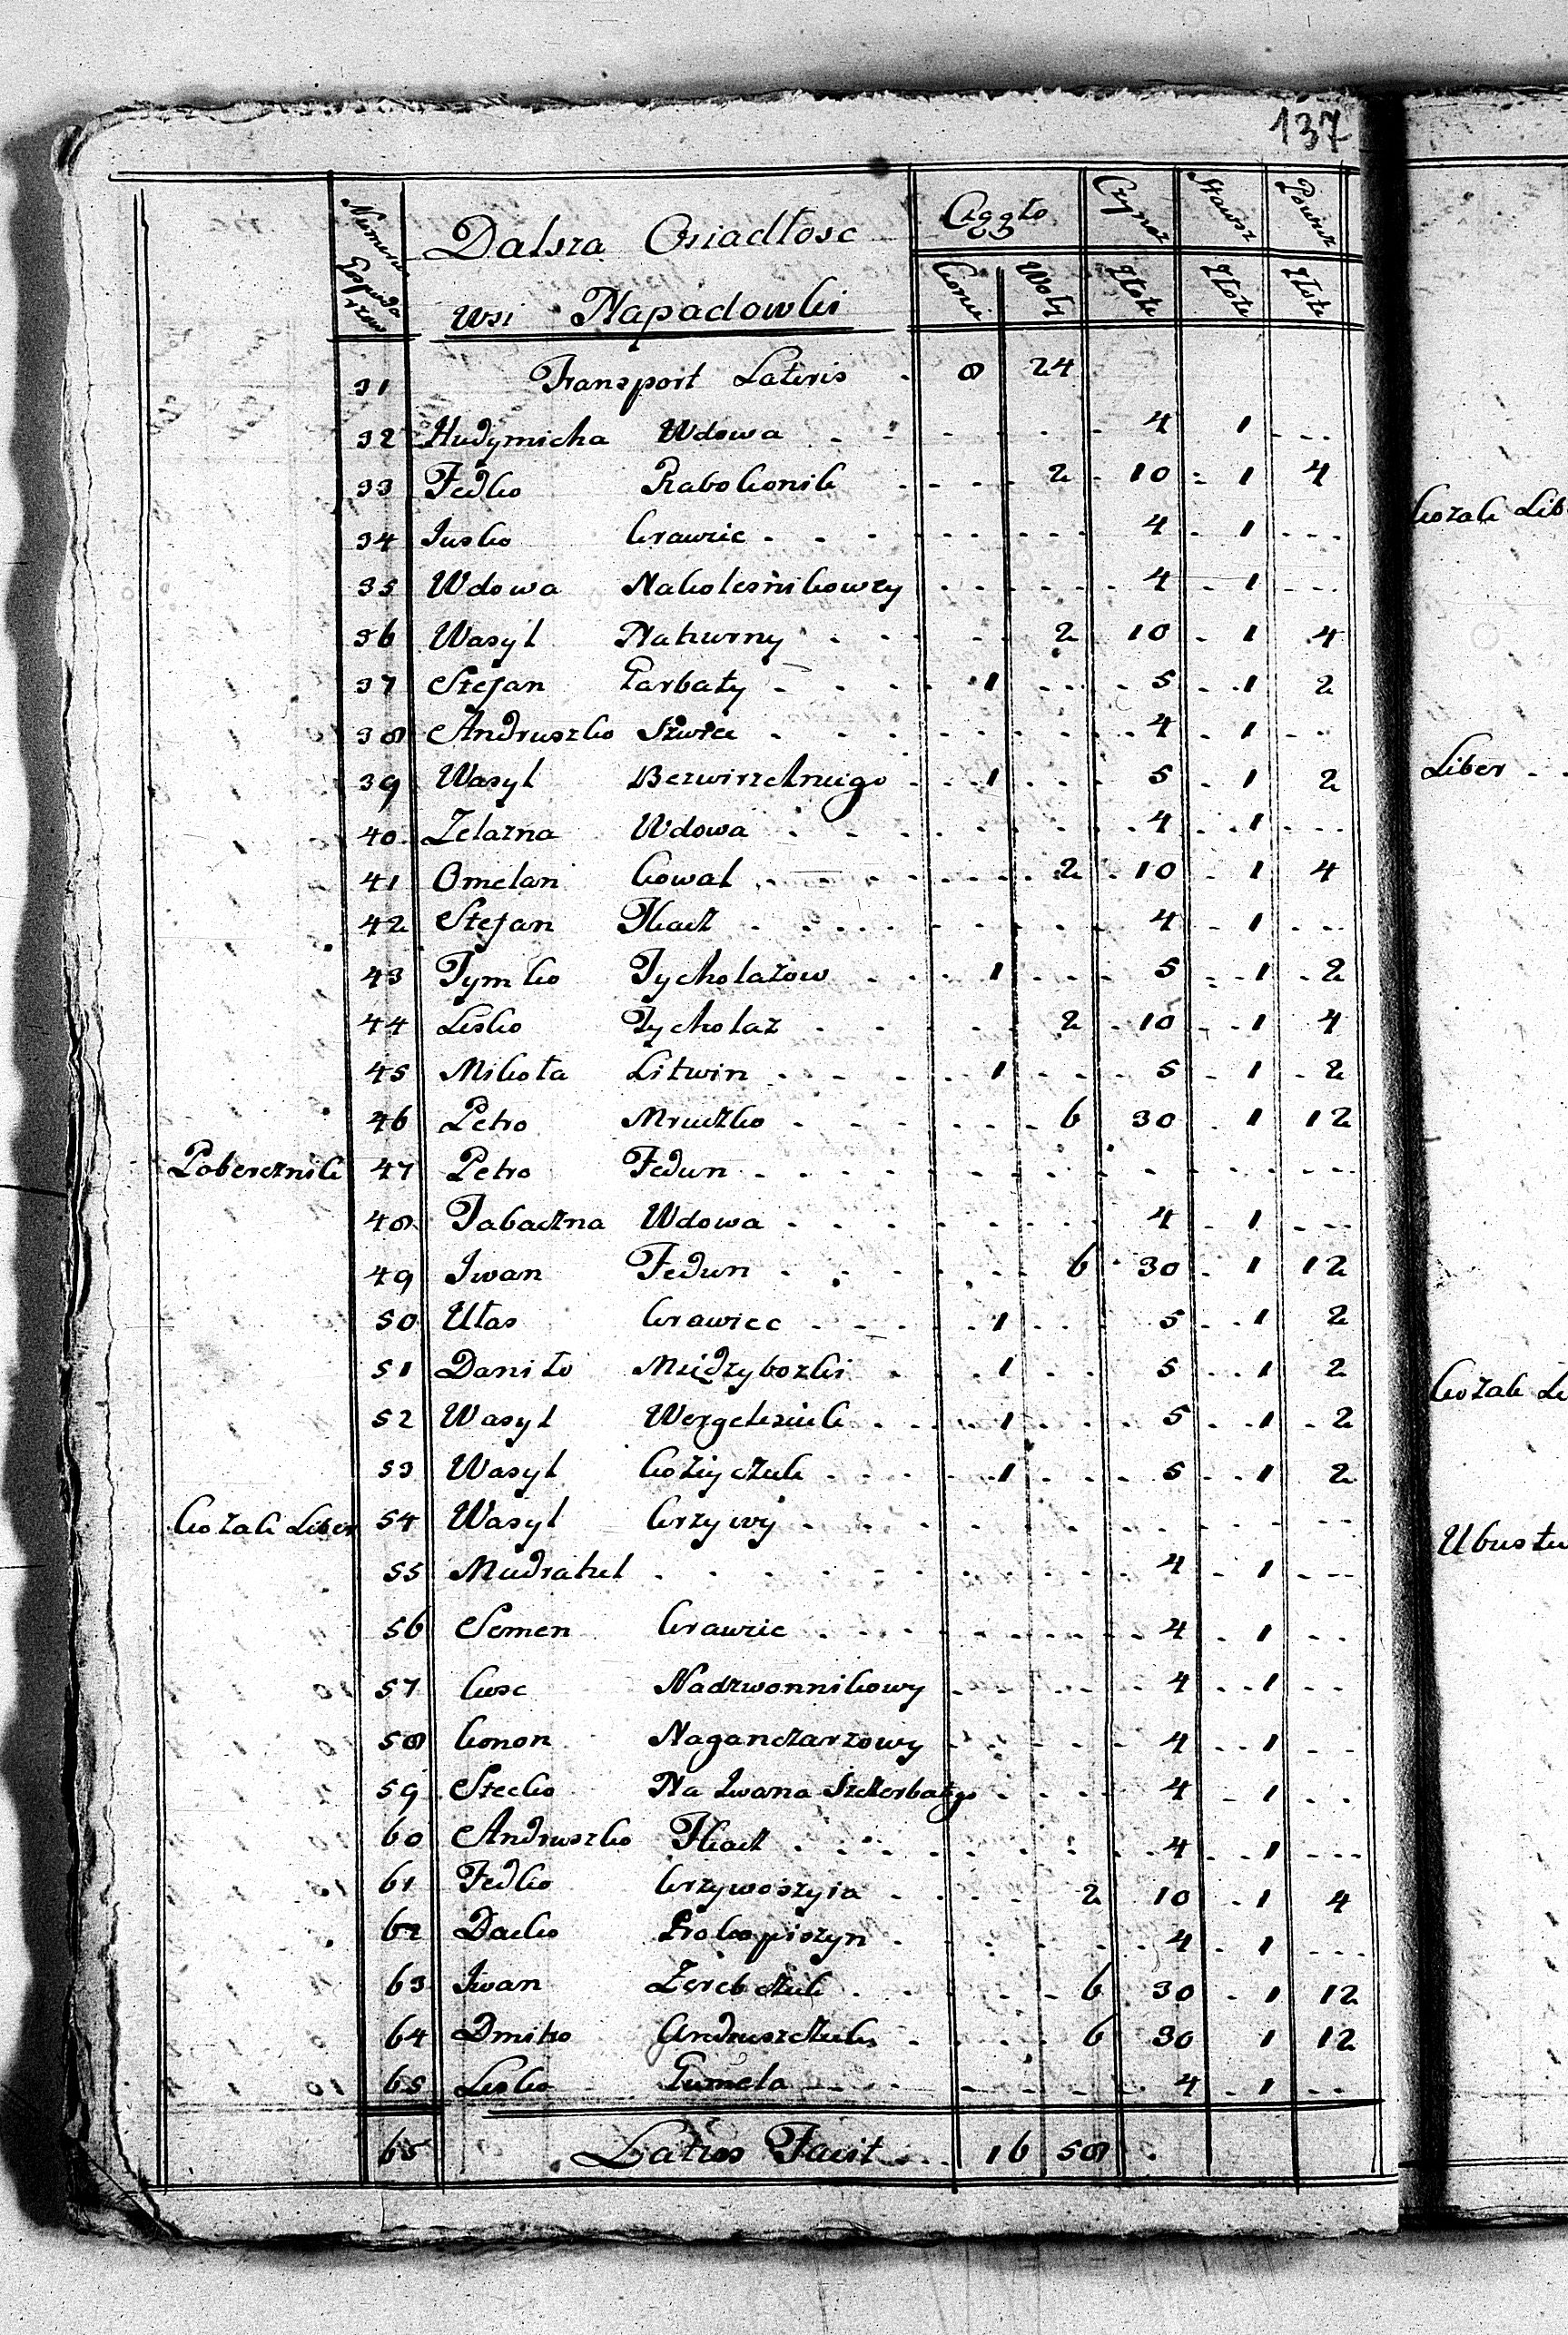 137
Numerus Gospodarzow
Dalsza Osiadłosc
wsi Napadowki
Ciągło
Konie Woły
Czynsz Złote
Złote
Złote
31 Transport Lateris . 8 24
32 Hudymicha Wdowa 4 1
33 Fedko Rabokonik 2 10 1 4
34 Jusko Krawiec 4 1
35 Wdowa Nakolesnikowzy 4 1
36 Wasyl 2 10 1 4
37 Stefan Garbaty 1 5 1 2
38 Andruszko Szwiec 4 1
39 Wasyl Bezwirzchniego 1 5 1 2
40 Zelazna Wdowa 4 1
41 Omelan Kowal 2 10 1 4
42 Stefan Tkacz 4 1
43 Tymko Tycholazow 1 5 1 2
44 Lesko Tycholaz 2 10 1 4
45 Mikoła Litwin 1 5 1 2
46 Petro Mruczko 6 30 1 12
Pobereznik 47 Petro Fedun
48 Tabaczna Wdowa 4 1
49 Iwan Fedun 6 30 1 12
50 Ułas Krawiec 1 5 1 2
51 Daniło Miedzybozki 1 5 1 2
52 Wasyl 1 5 1 2
53 Wasyl 1 5 1 2
Kozak Liber 54 Wasyl Krzywy
55 4 1
56 Semen Krawiec 4 1
57 Kusc Nadzwonnikowy 4 1
58 Konon Naganczarzowy 4 1
59 Stecko Na Iwana Szczerbatego 4 1
60 Andruszko Tkacz 4 1
61 Fedko Krzywoszyia 2 10 1 4
62 Dacko Prokopiszyn 4 1
63 Iwan Zerebczuk 6 30 1 12
64 Dmitro Andruszczuk 6 30 1 12
65 Lesko Gumela 4 1
65 Latus Facit 16 58
Kozak Lib
Liber
Kozak Li